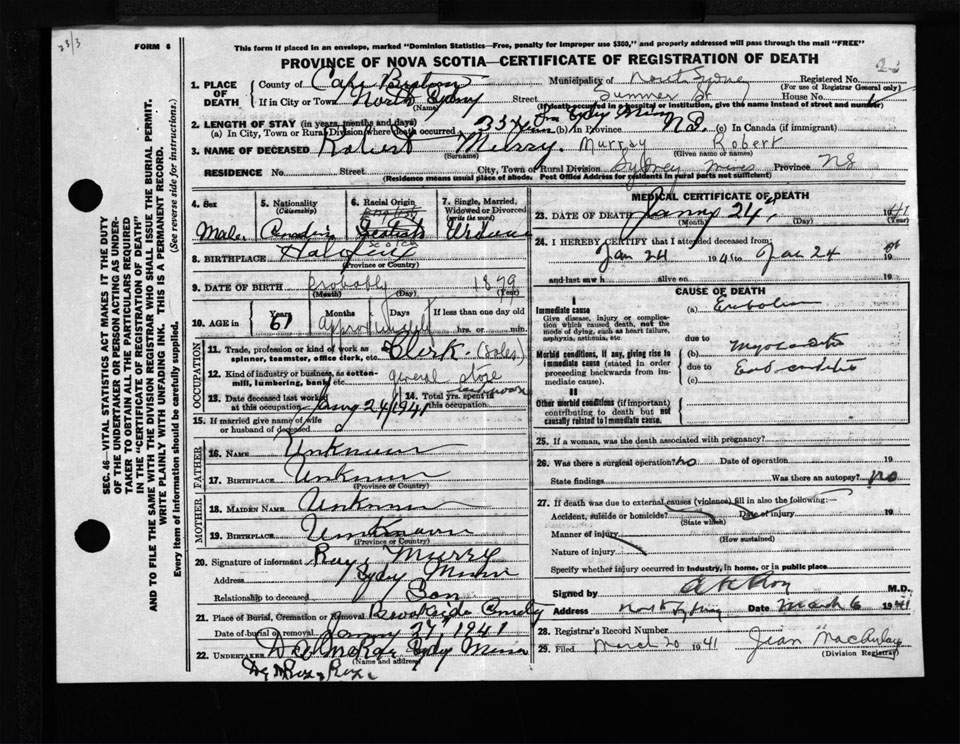 FORM 6
This form if placed in an envelope, marked "Dominion Statistics—Free, penalty for improper use $300," and properly addressed will pass through the mail "FREE"
PROVINCE OF NOVA SCOTIA—CERTIFICATE OF REGISTRATION OF DEATH
SEC. 46—VITAL STATISTICS ACT MAKES IT THE DUTY
OF THE UNDERTAKER OR PERSON ACTING AS UNDER-
TAKER TO OBTAIN ALL THE PARTICULARS REQUIRED
IN THE "CERTIFICATE OF REGISTRATION OF DEATH"
AND TO FILE THE SAME WITH THE DIVISION REGISTRAR WHO SHALL ISSUE THE BURIAL PERMIT.
WRITE PLAINLY WITH UNFADING INK. THIS IS A PERMANENT RECORD.
Every item of information should be carefully supplied. (See reverse side for instructions.)
1. PLACE OF DEATH
County of Cape Breton Municipality of North Sydney Registered No.
(For use of Registrar General only)
If in City or Town North Sydney Street Summer St House No. 1
(Name) (If death occurred in a hospital or institution, give the name instead of street and number)
2. LENGTH OF STAY (in years, months and days)
(a) In City, Town or Rural Division where death occurred 33 (b) In Province NS. (c) In Canada (if immigrant)
3. NAME OF DECEASED Robert Murry. Murray Robert
(Surname) (Given name or names)
RESIDENCE No. Street City, Town or Rural Division Sydney Mines Province NS
(Residence means usual place of abode. Post Office Address for residents in rural parts not sufficient)
4. Sex Male
5. Nationality (Citizenship)
6. Racial Origin Scotch
7. Single, Married, Widowed or Divorced (write the word)
8. BIRTHPLACE
(Province or Country)
9. DATE OF BIRTH Probably 1879
(Month) (Day) (Year)
10. AGE in Years 61 Months Days approximately If less than one day old
hrs. or min.
OCCUPATION
11. Trade, profession or kind of work as spinner, teamster, office clerk, etc. Clerk. (Sales)
12. Kind of industry or business, as cotton-mill, lumbering, bank, etc. general store
13. Date deceased last worked at this occupation Jany 24 1941
14. Total yrs. spent in this occupation unknown
15. If married give name of wife or husband of deceased
FATHER
16. NAME Unknown
17. BIRTHPLACE Unknown
(Province or Country)
MOTHER
18. MAIDEN NAME Unknown
19. BIRTHPLACE Unknown
(Province or Country)
20. Signature of informant Ray Murry
Address Sydy Mines
Relationship to deceased Son
21. Place of Burial, Cremation or Removal Brookside Cemetery
Date of burial or removal January 27 1941
22. UNDERTAKER Sydy Mines
(Name and address)
MEDICAL CERTIFICATE OF DEATH
23. DATE OF DEATH Jany 24, 1941
(Month) (Day) (Year)
24. I HEREBY CERTIFY that I attended deceased from:
Jan 24 1941 to Jan 24 19
and last saw h alive on 19
CAUSE OF DEATH
I
Immediate cause
Give disease, injury or complication which caused death, not the modes of dying, such as heart failure, asphyxia, asthenia, etc.
(a) Embolism
due to
Morbid conditions, if any, giving rise to immediate cause (stated in order proceeding backwards from immediate cause).
(b) Myocarditis
due to
(c) Endocarditis
II
Other morbid conditions (if important) contributing to death but not causally related to immediate cause.
25. If a woman, was the death associated with pregnancy?
26. Was there a surgical operation? no Date of operation 19
State findings Was there an autopsy? no
27. If death was due to external causes (violence) fill in also the following:—
Accident, suicide or homicide? Date of injury 19
(State which)
Manner of injury
(How sustained)
Nature of injury
Specify whether injury occurred in Industry, in home, or in public place
Signed by M.D.
Address North Sydney Date March 6 1941
28. Registrar's Record Number
29. Filed March 20 1941 Jean MacAulay
(Division Registrar)